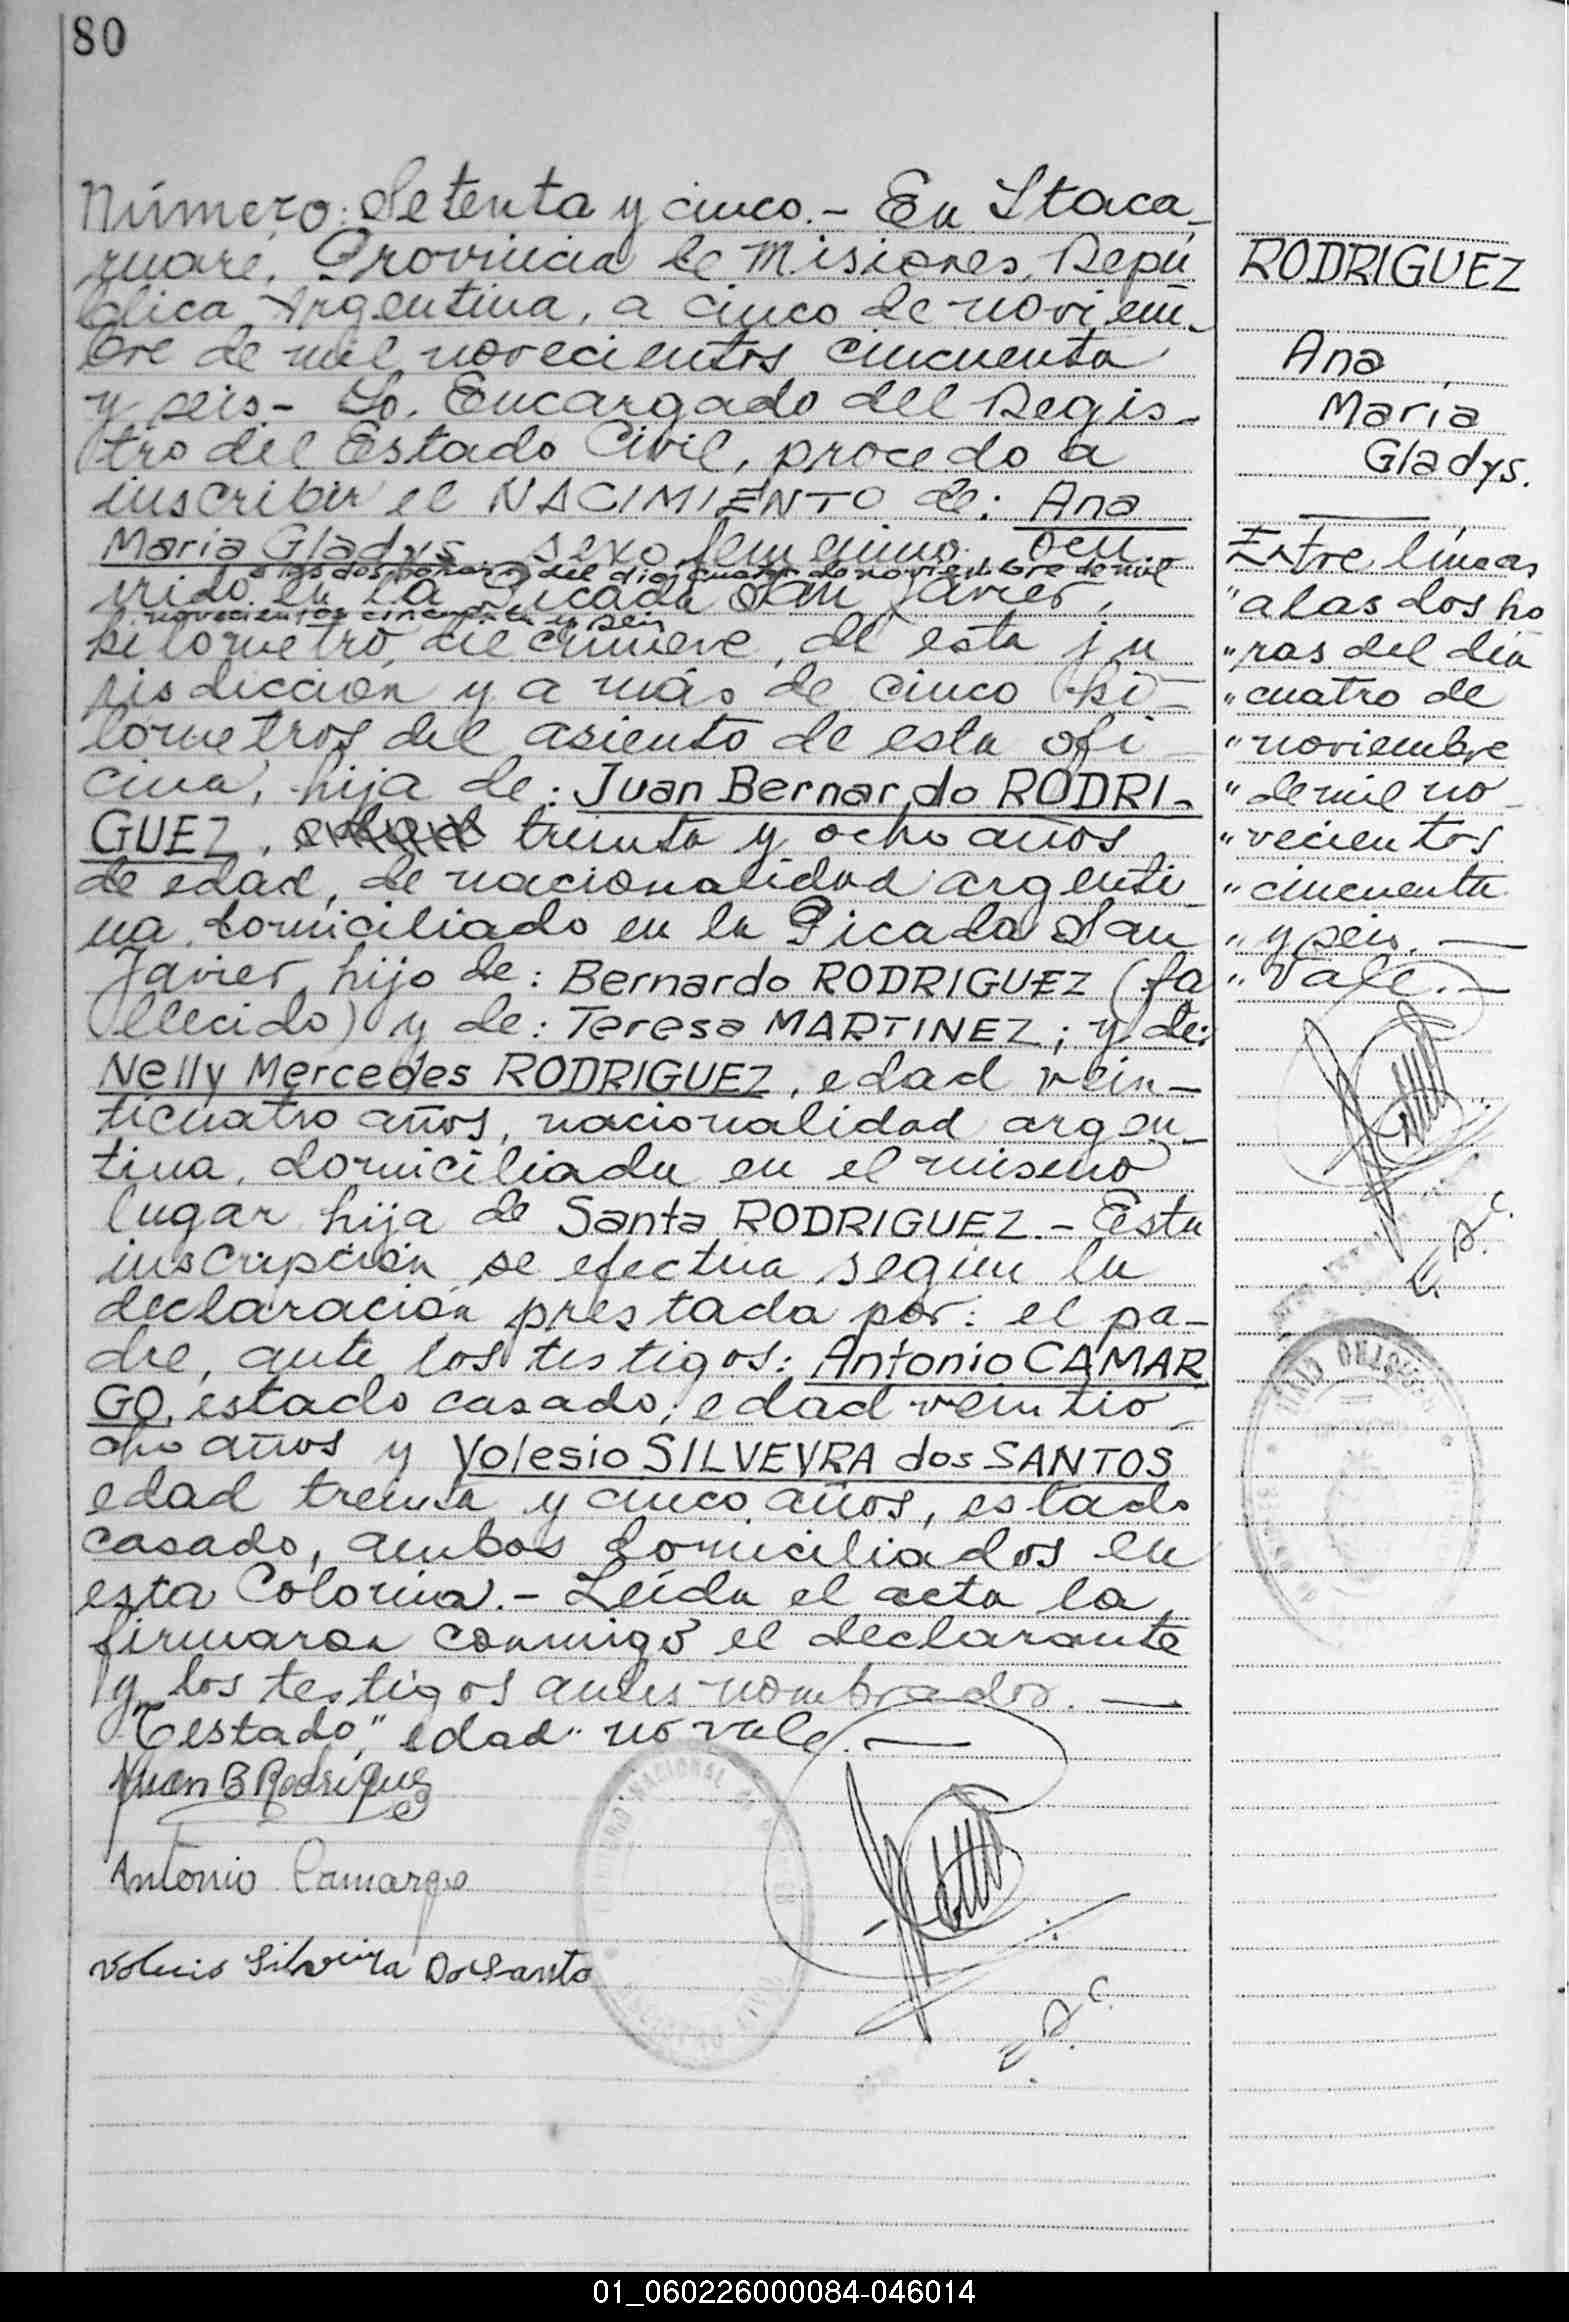 80
Número: Setenta y cinco.- En Itaca-
ruaré, Provincia de Misiones, Repú
blica Argentina, a cinco de noviem-
bre de mil novecientos cincuenta
y seis- Yo, Encargado del Regis-
tro del Estado Civil, procedo a
inscribir el NACIMIENTO de: Ana
Maria Gladys sexo femenino ocu
a las dos horas del día cuatro de noviembre de mil
rrido en la Picada San Javier,
novecientos cincuenta y seis
kilometro, diecinueve, de esta ju
risdiccion y a más de cinco ki-
lometros del asiento de esta ofi-
cina, hija de: Juan Bernardo RODRI-
GUEZ, edad treinta y ocho años
de edad, de nacionalidad argenti
na, domiciliado en la Picada San
Javier, hijo de: Bernardo RODRIGUEZ (fa
llecido) y de: Teresa MARTINEZ; y de:
Nelly Mercedes RODRIGUEZ, edad vein-
ticuatro años, nacionalidad argen-
tina, domiciliada en el mismo
lugar hija de Santa RODRIGUEZ.- Esta
inscripción se efectúa según la
declaración prestada por: el pa-
dre, ante los testigos: Antonio CAMAR
GO, estado casado, edad veintio-
cho años y Yolesio SILVEYRA dos SANTOS
edad treinta y cinco años, estado
casado, ambos domiciliados en
esta Colonia.- Leída el acta la
firmaron conmigo el declarante
y los testigos antes nombrados.—
Testado, "edad" no vale.—
Juan B Rodriguez
Antonio Camargo
Silveira Do Santo
RODRIGUEZ
Ana
Maria
Gladys.
Entre líneas
"a las dos ho
"ras del día
"cuatro de
"noviembre
"de mil no-
"vecientos
"cincuenta
"y seis.—
"Vale.—
01_060226000084-046014